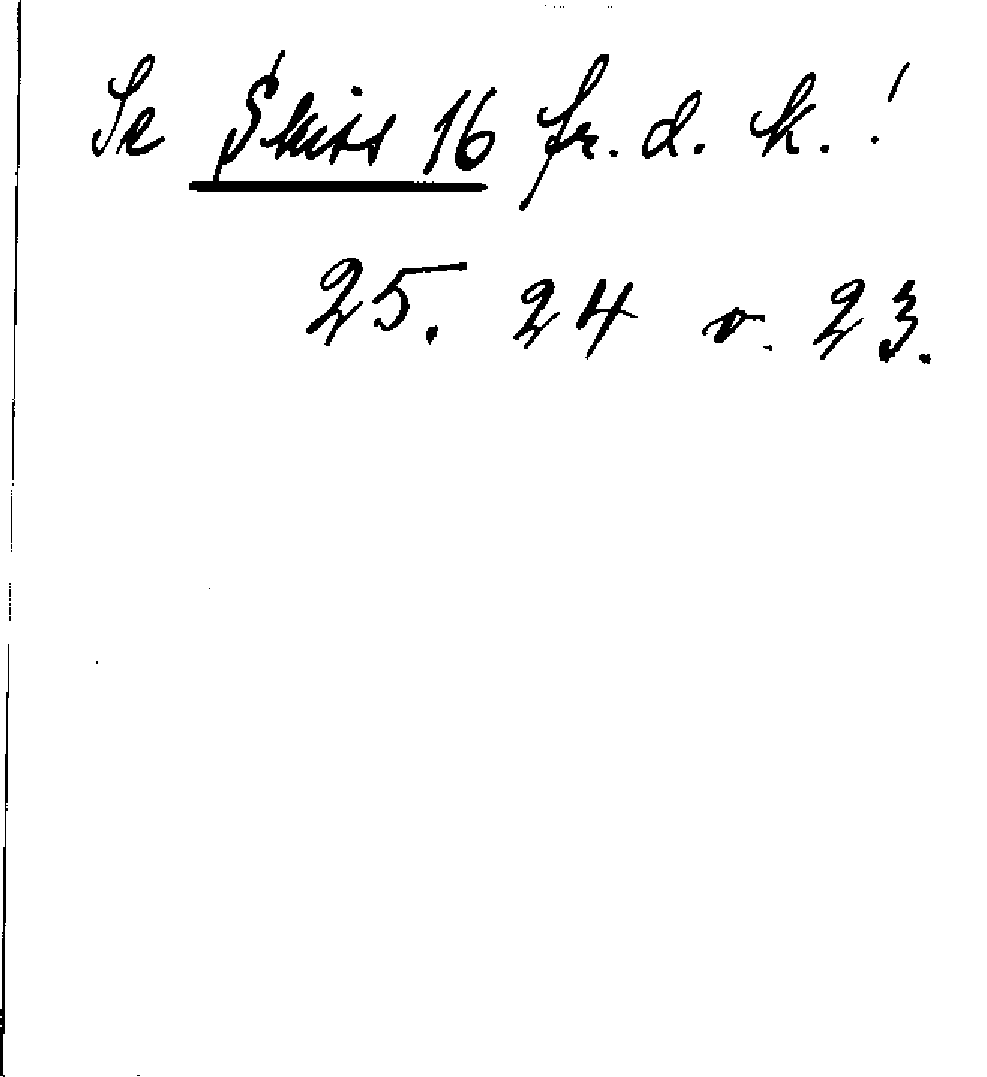 Se Skiss 16 fr. d. k.!
25. 24 v. 23.